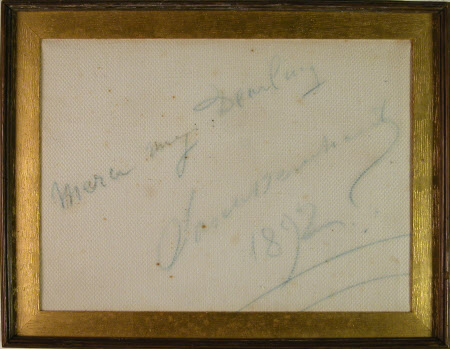 Merci my Darling
Sarah Bernhardt
1892